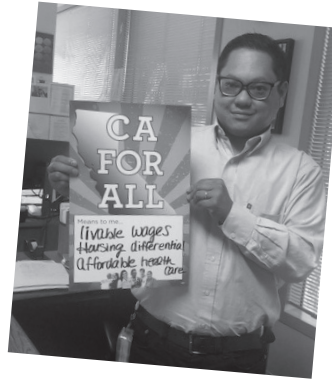 CA
FOR
ALL
Means to me...
livable wages
Housing differential
affordable health
care